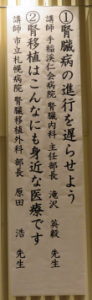 ①腎臓病の進行を遅らせよう
講師 手稲渓仁会病院 腎臓内科 主任部長 滝沢 英毅 先生
②腎移植はこんなにも身近な医療です
講師 市立札幌病院 腎移植外科 部長 原田 浩 先生